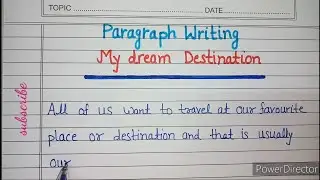 TOPIC
DATE
Paragraph Writing
My dream Destination
subscribe
All of us want to travel at our favourite
place or destination and that is usually
our
PowerDirector